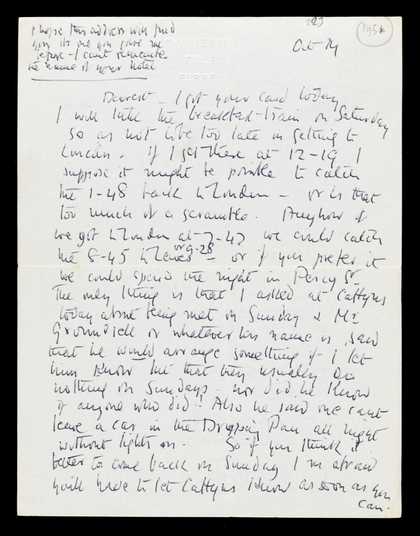 I hope this address will find
you its one you gave me
before - I cant remember
the name of your hotel
Oct 14
Dearest - I got your card today
I will take the breakfast-train on Saturday
so as not to be too late in getting to
Lincoln. If I get there at 12-19 I
suppose it might be possible to catch
the 1-48 back to London - or is that
too much of a scramble. Anyhow if
we got to London at 7-47 we could catch
the 8-45 to Lewes or 9-28 - or if you prefer it
we could spend the night in Percy St.
The only thing is that I asked at Caffyns
today about being met on Sunday & Mr
or whatever his name is, said
that he would arrange something if I let
him know but that they usually do
nothing on Sundays - nor did he know
of anyone who did. Also he said one cant
leave a car in the Dripping Pan all night
without lights on. So if you think it
better to come back on Sunday I'm afraid
you'll have to let Caffyns know as soon as you
can.